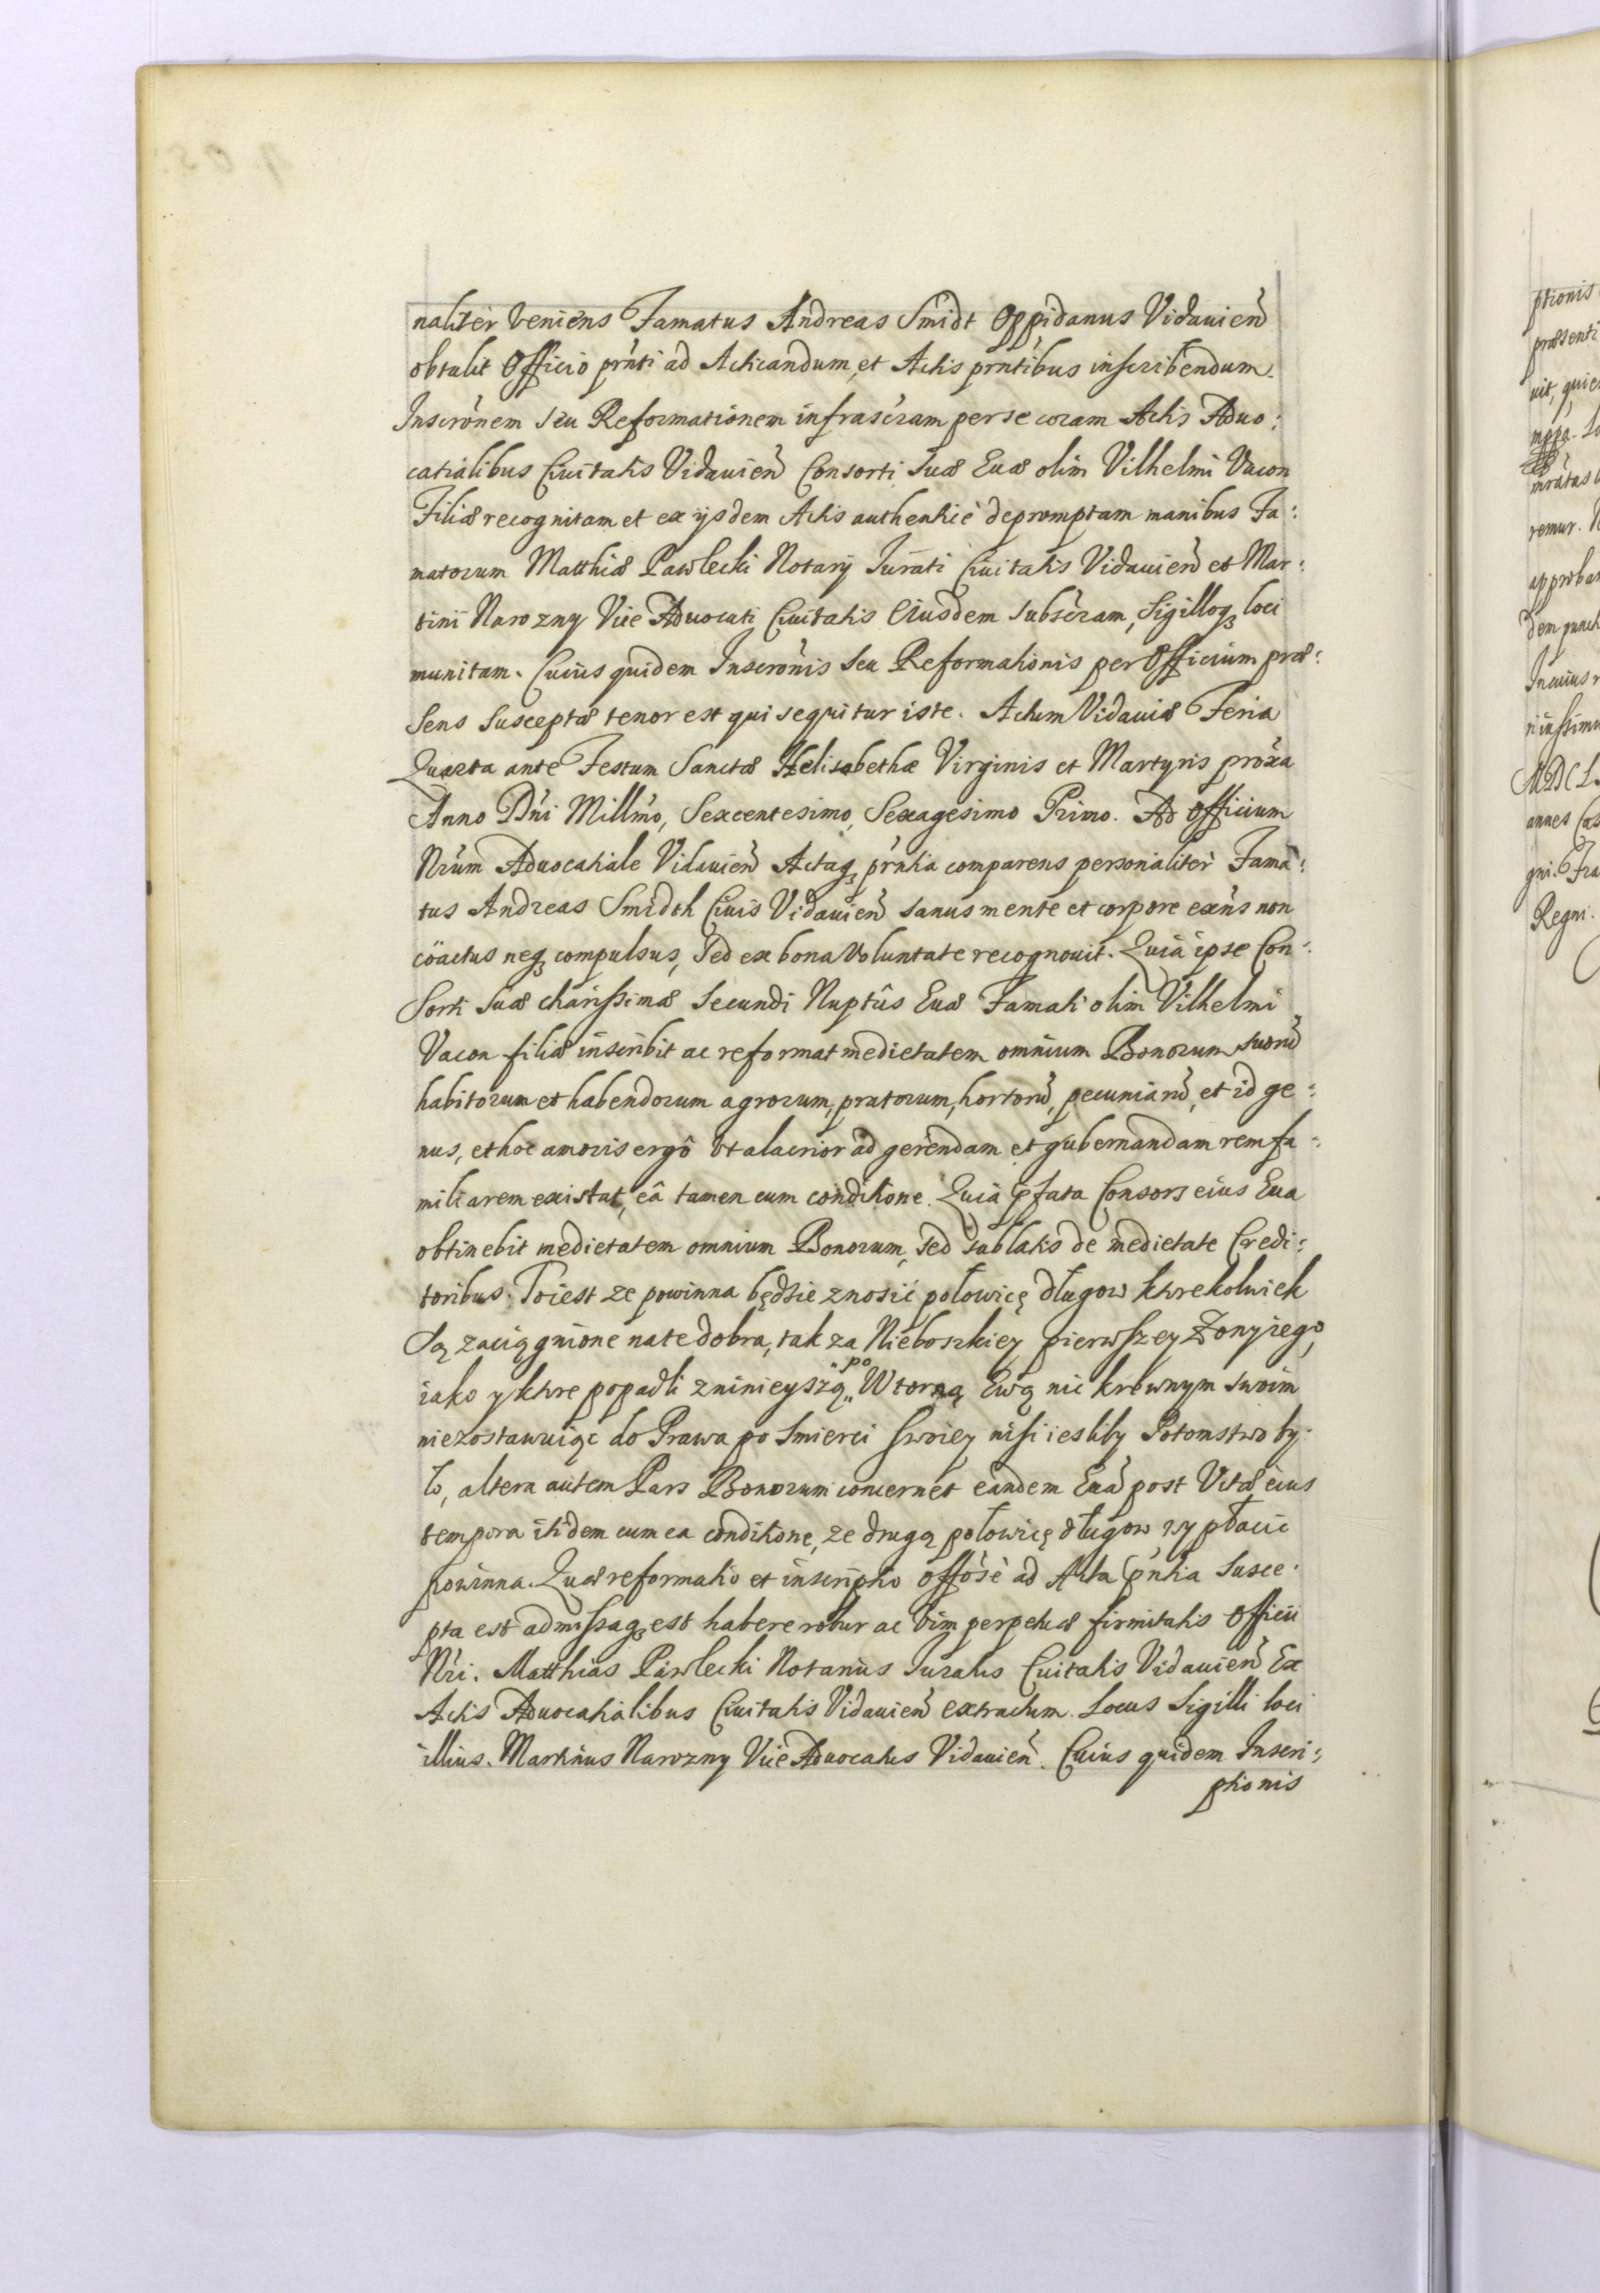 naliter veniens Famatus Andreas Smidt Oppidanus Vidauień
obtulit Officio prńti ad Acticandum, et Actis prntibus inscribendum.
Inscrónem seu Reformationem infrascram per se coram Actis Aduo:
catialibus Ciuitatis Vidauień Consorti suæ Euæ olim Vilhelmi Vacon
Filiæ recognitam et ex ijsdem Actis authenticè depromptam manibus Fa:
matorum Matthiæ Pawlecki Notarij Jurati Ciuitatis Vidauień et Mar:
tini Narozny Vice Aduocati Ciuitatis Eiusdem subscram, Sigilloqꝫ loci
munitam. Cuius quidem Inscrónis seu Reformationis per Officium præ:
sens susceptæ tenor est qui sequitur iste. Actum Vidauiæ Feria
Quarta ante Festum Sanctæ Helisabethæ Virginis et Martyris próxa
Anno Dńi Millmo, Sexcentesimo, Sexagesimo Primo. Ad Officium
Nrum Aduocatiale Vidauień Actaqꝫ prntia comparens personaliter Fama:
tus Andreas Smidth Ciuis Vidauień sanus mente et corpore exńs non
coactus neqꝫ compulsus, sed ex bona voluntate recognouit. Quia ipse Con:
sorti suæ charissimæ secundi Nuptûs Euæ Famati olim Vilhelmi
Vacon filiæ inscribit ac reformat medietatem omnium Bonorum suorũ
habitorum et habendorum agrorum, pratorum, hortorũ, pecuniarũ, et id ge:
nus, et hoc amoris ergô vt alacrior ad gerendam et gubernandam rem fa:
miliarem existat, eâ tamen cum conditione. Quia pfata Consors eius Eua
obtinebit medietatem omnium Bonorum, sed sublatis de medietate Credi:
toribus. To iest ze powinna będzie znosić połowicę długow ktorekolwiek
Są zaciągnione na te dobra, tak za Nieboszkiey pierwszey Zony iego,
iako y ktore popadli z ninieyszą po Wtorną Ewą nic krewnym swoim
niezostawuiąc do Prawa po Smierci swoiey nisi iesliby Potomstwo by:
ło, altera autem Pars Bonorum concernet eandem Euã post Vitæ eius
tempora itidem cum ea conditione, ze drugą połowicę długow wypłacic
powinna. Quæ reformatio et inscriptio Offosè ad Acta pńtia susce:
pta est admissaqꝫ est habere robur ac vim perpetuæ firmitatis Officii
Nri. Matthias Pawlecki Notarius Juratus Ciuitatis Vidauień Ex
Actis Aduocatialibus Ciuitatis Vidauień extractum. Locus Sigilli loci
illius. Martinus Narozny Vice Aduocatus Vidauień. Cuius quidem Inscri:
ptionis